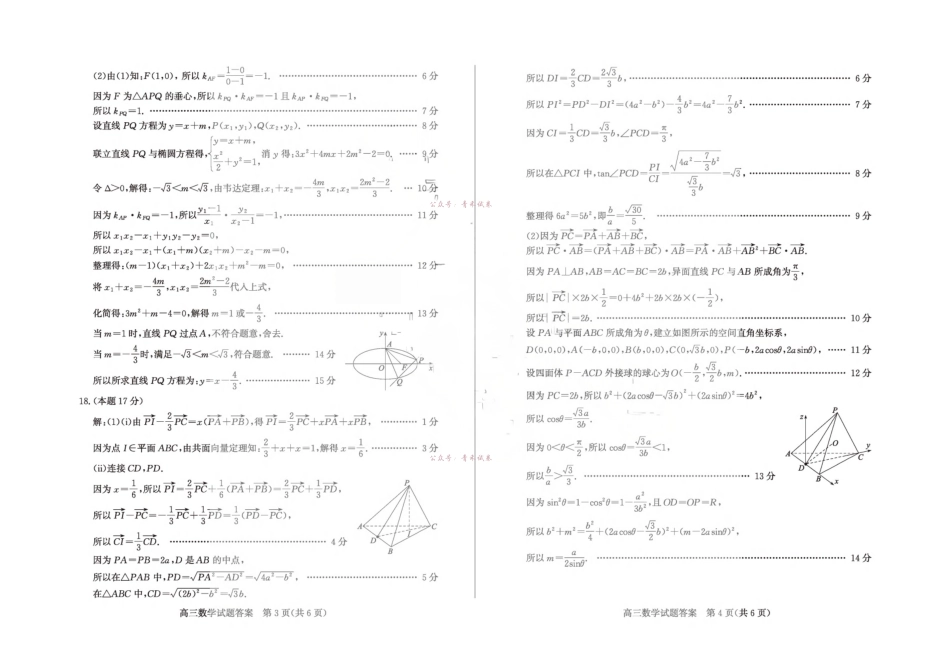 (2)由(1)知,F(1,0), 所以 k_AF=(1-0)/(0-1)=-1. ………… 6分
因为 F 为△APQ 的垂心,所以 k_PQ·k_AF=-1 且 k_AP·k_FQ=-1,
所以 k_PQ=1. ………… 7分
设直线 PQ 方程为 y=x+m,P(x₁,y₁),Q(x₂,y₂). ………… 8分
联立直线 PQ 与椭圆方程得,{y=x+m, x²/2+y²=1, 消 y 得:3x²+4mx+2m²-2=0, …… 9分
令 Δ>0,解得:-√3<m<√3,由韦达定理:x₁+x₂=-4m/3,x₁x₂=(2m²-2)/3. … 10分
因为 k_AP·k_FQ=-1,所以 (y₁-1)/x₁·y₂/(x₂-1)=-1, ………… 11分
所以 x₁x₂-x₁+y₁y₂-y₂=0,
所以 x₁x₂-x₁+(x₁+m)(x₂+m)-x₂-m=0,
整理得:(m-1)(x₁+x₂)+2x₁x₂+m²-m=0, ………… 12分
将 x₁+x₂=-4m/3,x₁x₂=(2m²-2)/3 代入上式,
化简得:3m²+m-4=0,解得 m=1 或-4/3. ………… 13分
当 m=1 时,直线 PQ 过点 A,不符合题意,舍去.
当 m=-4/3时,满足-√3<m<√3,符合题意. ……… 14分
所以所求直线 PQ 方程为:y=x-4/3. ………… 15分
y
A
O
F
P
x
Q
18.(本题17分)
解:(1)(i)由 PI-2/3PC=x(PA+PB),得 PI=2/3PC+xPA+xPB, ………… 1分
因为点 I∈平面 ABC,由共面向量定理知:2/3+x+x=1,解得 x=1/6. ………… 3分
(ii)连接 CD,PD.
因为 x=1/6,所以 PI=2/3PC+1/6(PA+PB)=2/3PC+1/3PD,
所以 PI-PC=-1/3PC+1/3PD=1/3(PD-PC),
所以 CI=1/3CD. ………… 4分
因为 PA=PB=2a,D 是 AB 的中点,
所以在△PAB 中,PD=√(PA²-AD²)=√(4a²-b²), ………… 5分
在△ABC 中,CD=√((2b)²-b²)=√3b.
P
A
C
D
I
B
高三数学试题答案 第3页(共6页)
所以 DI=2/3CD=2√3/3b, ………… 6分
所以 PI²=PD²-DI²=(4a²-b²)-4/3b²=4a²-7/3b². ………… 7分
因为 CI=1/3CD=√3/3b,∠PCD=π/3,
所以在△PCI 中,tan∠PCD=PI/CI=√(4a²-7/3b²)/(√3/3b)=√3, ………… 8分
整理得 6a²=5b²,即 b/a=√30/5. ………… 9分
(2)因为 PC=PA+AB+BC,
所以 PC·AB=(PA+AB+BC)·AB=PA·AB+AB²+BC·AB.
因为 PA⊥AB,AB=AC=BC=2b,异面直线 PC 与 AB 所成角为π/3,
所以|PC|×2b×1/2=0+4b²+2b×2b×(-1/2),
所以|PC|=2b. ………… 10分
设 PA 与平面 ABC 所成角为 θ,建立如图所示的空间直角坐标系,
D(0,0,0),A(-b,0,0),B(b,0,0),C(0,√3b,0),P(-b,2acosθ,2asinθ), …… 11分
设四面体 P-ACD 外接球的球心为 O(-b/2,√3/2b,m). ………… 12分
因为 PC=2b,所以 b²+(2acosθ-√3b)²+(2asinθ)²=4b²,
所以 cosθ=√3a/3b.
因为 0<θ<π/2,所以 cosθ=√3a/3b<1,
所以b/a>√3/3. ………… 13分
因为 sin²θ=1-cos²θ=1-a²/3b²,且 OD=OP=R,
所以 b²+m²=b²/4+(2acosθ-√3/2b)²+(m-2asinθ)²,
所以 m=a/2sinθ. ………… 14分
z
P
O
y
A
C
D
B
x
高三数学试题答案 第4页(共6页)
公众号·青禾试卷
公众号·青禾试卷